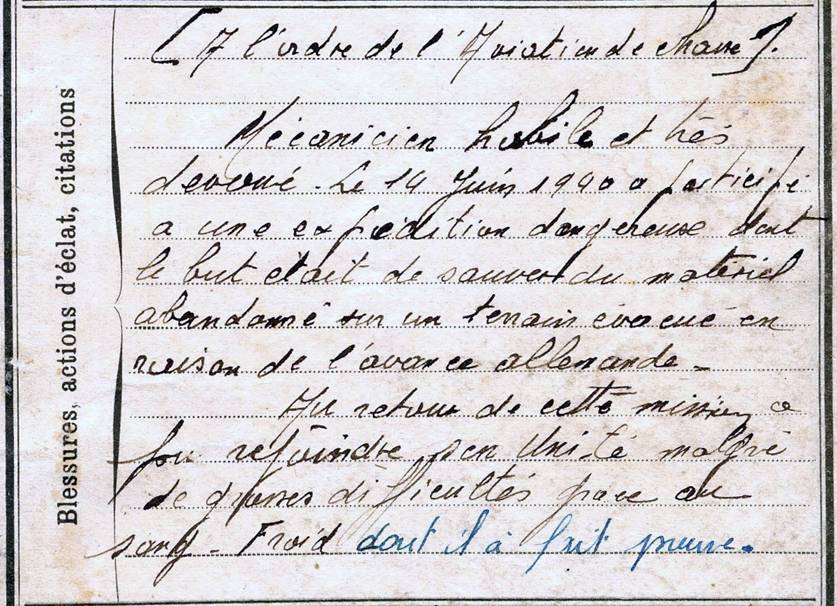 Blessures, actions d'éclat, citations
[A l'ordre de l'Aviation de chasse].
Mécanicien habile et très
dévoué. Le 14 Juin 1940 a participé
a une expédition dangereuse dont
le but était de sauver du matériel
abandonné sur un terrain évacué en
raison de l'avance allemande -
Au retour de cette mission a
pu rejoindre son Unité malgré
de grosses difficultés grace au
sang-Froid dont il à fait preuve.